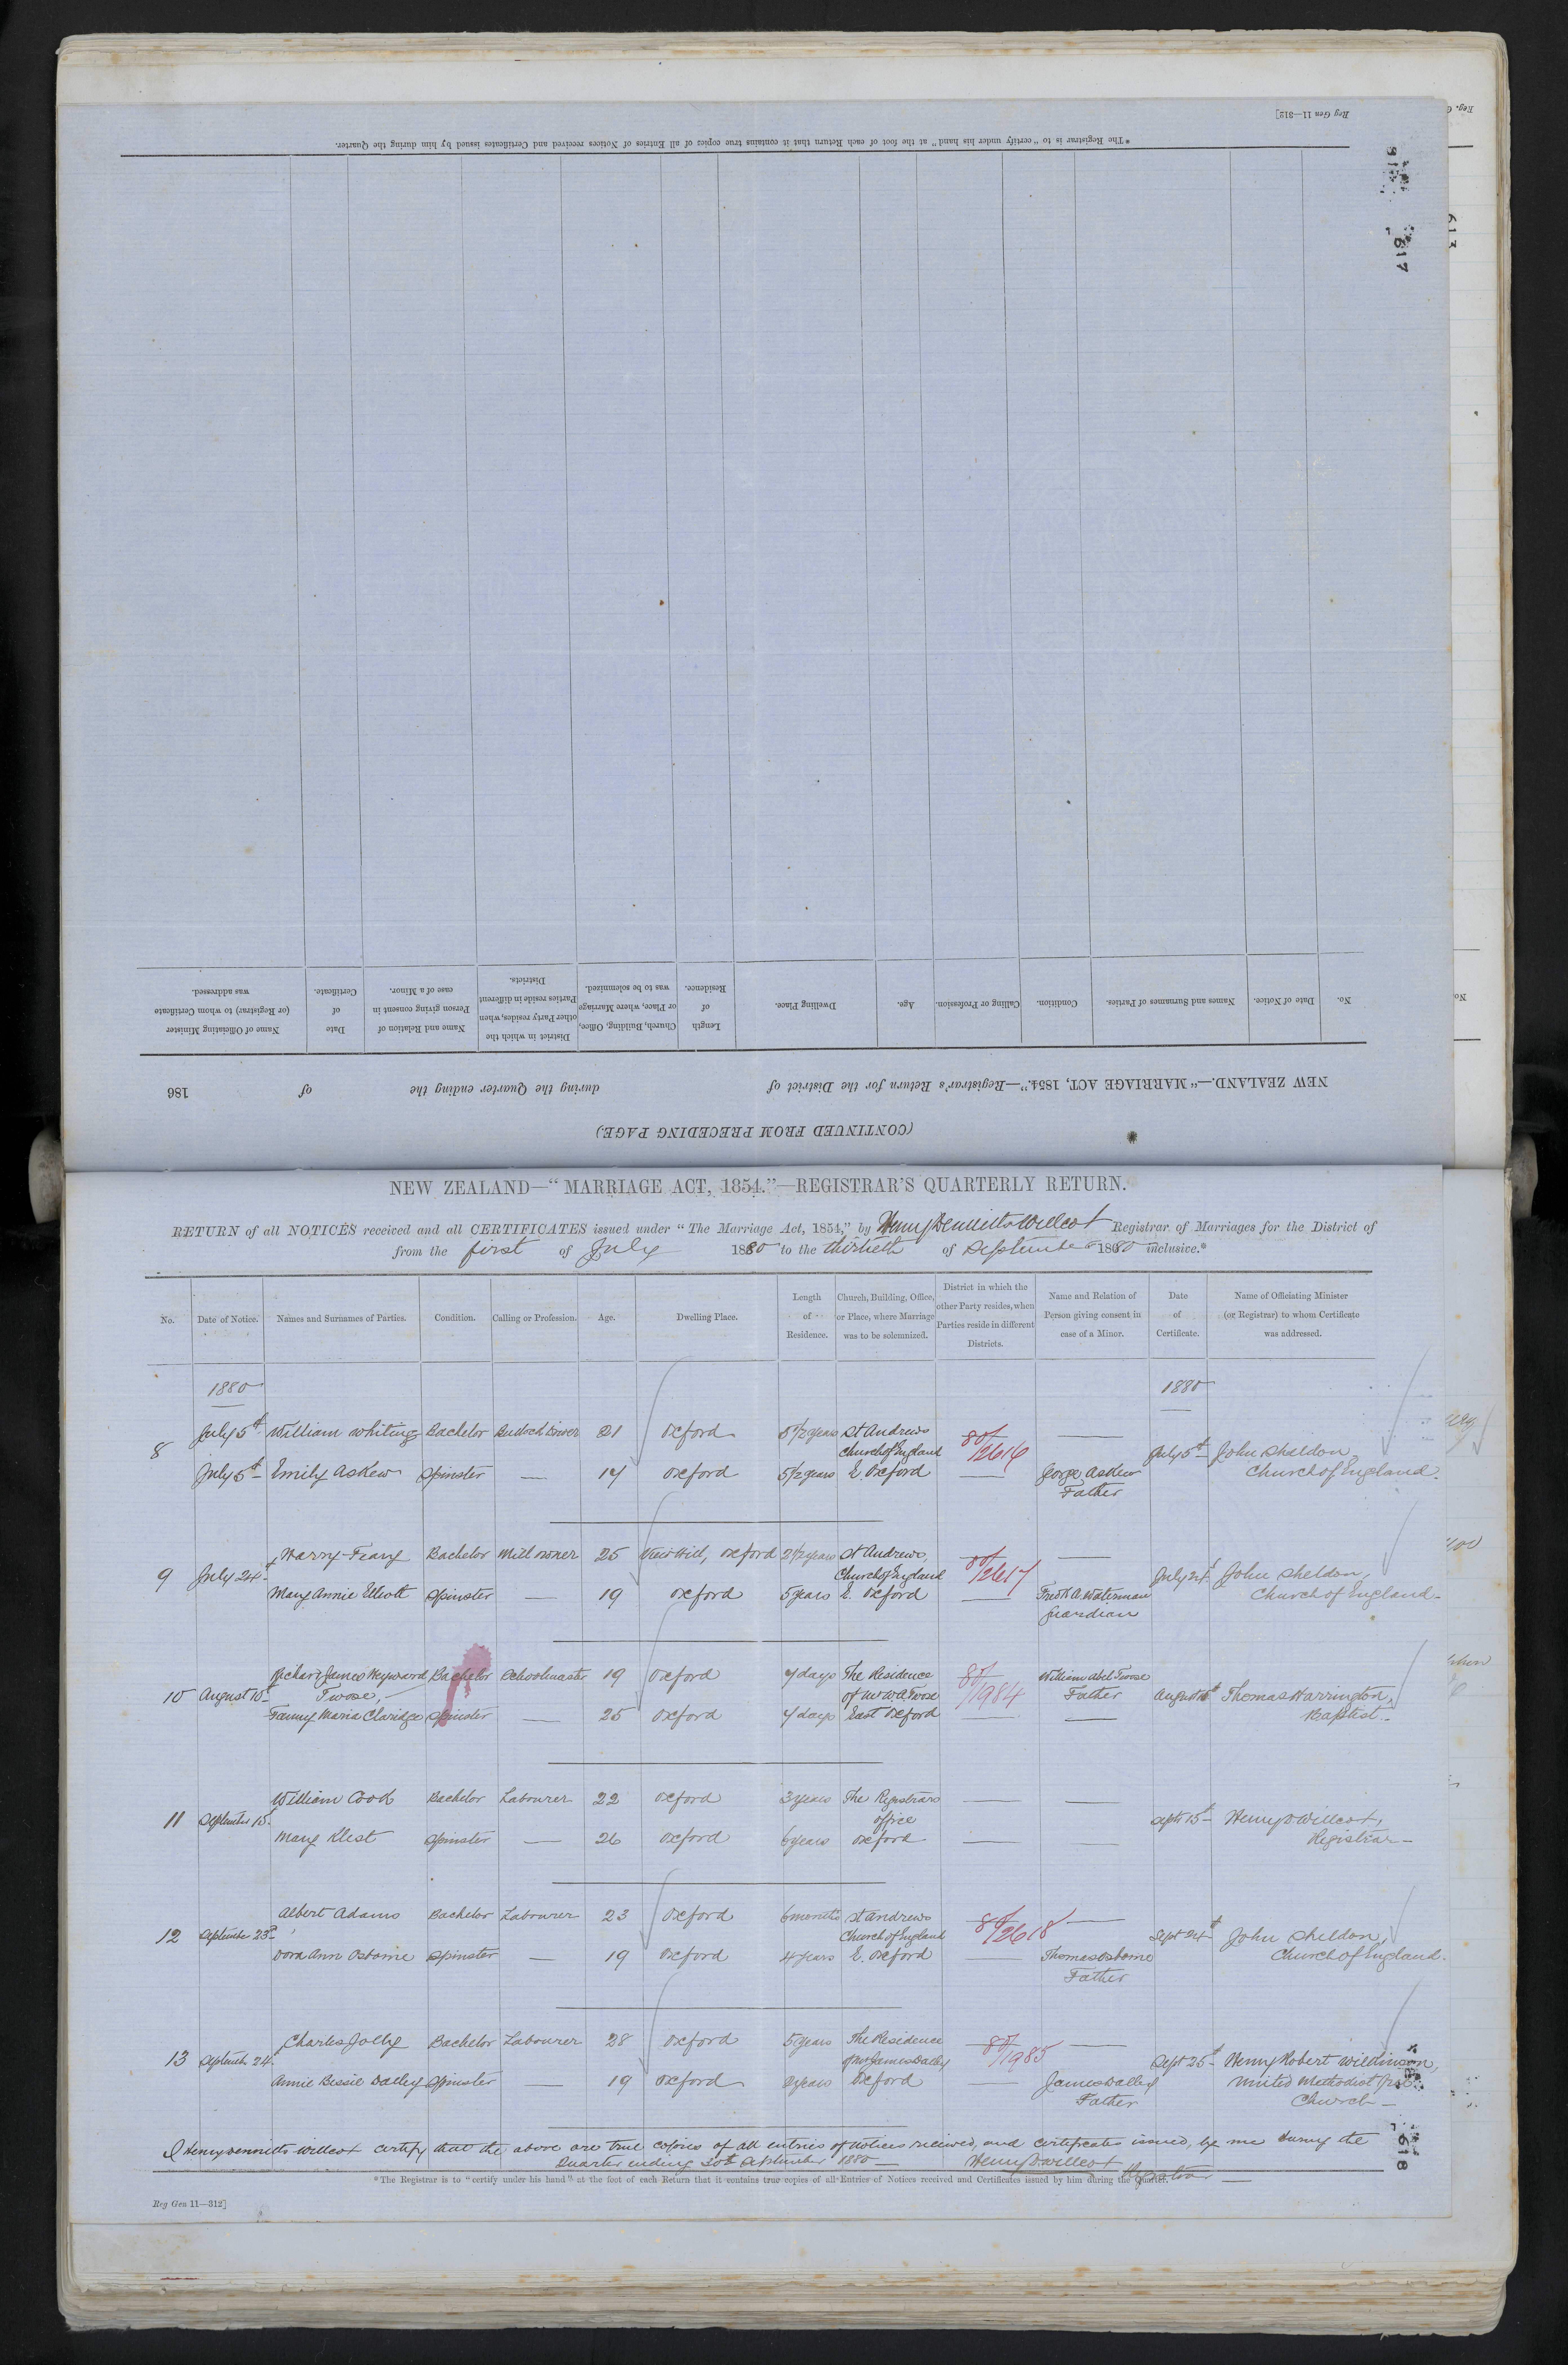 Reg Gen 11—312]
*The Registrar is to "certify under his hand" at the foot of each Return that it contains true copies of all Entries of Notices received and Certificates issued by him during the Quarter.
617
613
No. Date of Notice. Names and Surnames of Parties. Condition. Calling or Profession. Age. Dwelling Place. Length of Residence. Church, Building, Office, or Place, where Marriage was to be solemnized. District in which the other Party resides, when Parties reside in different Districts. Name and Relation of Person giving consent in case of a Minor. Date of Certificate. Name of Officiating Minister (or Registrar) to whom Certificate was addressed.
NEW ZEALAND.—"MARRIAGE ACT, 1854."—Registrar's Return for the District of during the Quarter ending the of 186
(CONTINUED FROM PRECEDING PAGE)
NEW ZEALAND—"MARRIAGE ACT, 1854."—REGISTRAR'S QUARTERLY RETURN.
RETURN of all NOTICES received and all CERTIFICATES issued under "The Marriage Act, 1854," by Henry Dennitts Willcox Registrar of Marriages for the District of
from the first of July 1880 to the thirtieth of September 1880 inclusive.*
No. Date of Notice. Names and Surnames of Parties. Condition. Calling or Profession. Age. Dwelling Place. Length of Residence. Church, Building, Office, or Place, where Marriage was to be solemnized. District in which the other Party resides, when Parties reside in different Districts. Name and Relation of Person giving consent in case of a Minor. Date of Certificate. Name of Officiating Minister (or Registrar) to whom Certificate was addressed.
1880 1880
8 July 5th William Whiting Bachelor Bullock Driver 21 Oxford 5 1/2 years St Andrews Church of England 80/2616 July 5th John Sheldon,
July 5th Emily Askew Spinster — 17 Oxford 5 1/2 years E. Oxford — George Askew Father Church of England.
9 July 24th Harry Bachelor Mill owner 25 View Hill, Oxford 2 1/2 years St Andrews, Church of England 80/2617 — July 24th John Sheldon,
Mary Annie Elliott Spinster — 19 Oxford 5 years E. Oxford — Fredk A. Waterman Guardian Church of England—
10 August 10th Richard James Heyward Twose, Bachelor Schoolmaster 19 Oxford 4 days The Residence of Mr W. A. Twose 80/1984 William Abel Twose Father August Thomas Harrington,
Fanny Maria Claridge Spinster — 25 Oxford 4 days East Oxford — — Baptist.
11 September 15th William Cook Bachelor Labourer 22 Oxford 3 years The Registrars office — — Septr 15th Henry D Willcox,
Mary Klest Spinster — 26 Oxford 6 years Oxford — — Registrar—
12 September 23rd Albert Adams Bachelor Labourer 23 Oxford 6 months St Andrews Church of England 80/2618 — Sept 24th John Sheldon,
Dora Ann Osborne Spinster — 19 Oxford 4 years E. Oxford — Thomas Osborne Father Church of England.
13 September 24 Charles Jolly Bachelor Labourer 28 Oxford 5 years The Residence of Mr James Dalley 80/1985 — Sept 25th Henry Robert Wilkinson,
Annie Bessie Dalley Spinster — 19 Oxford years Oxford — James Dalley Father United Methodist Free Church—
I Henry Dennitts Willcox certify that the above are true copies of all entries of notices received, and certificates issued, by me during the
Quarter ending 30th September 1880— Henry D Willcox Registrar
*The Registrar is to "certify under his hand" at the foot of each Return that it contains true copies of all Entries of Notices received and Certificates issued by him during the Quarter.
Reg Gen 11—312]
618